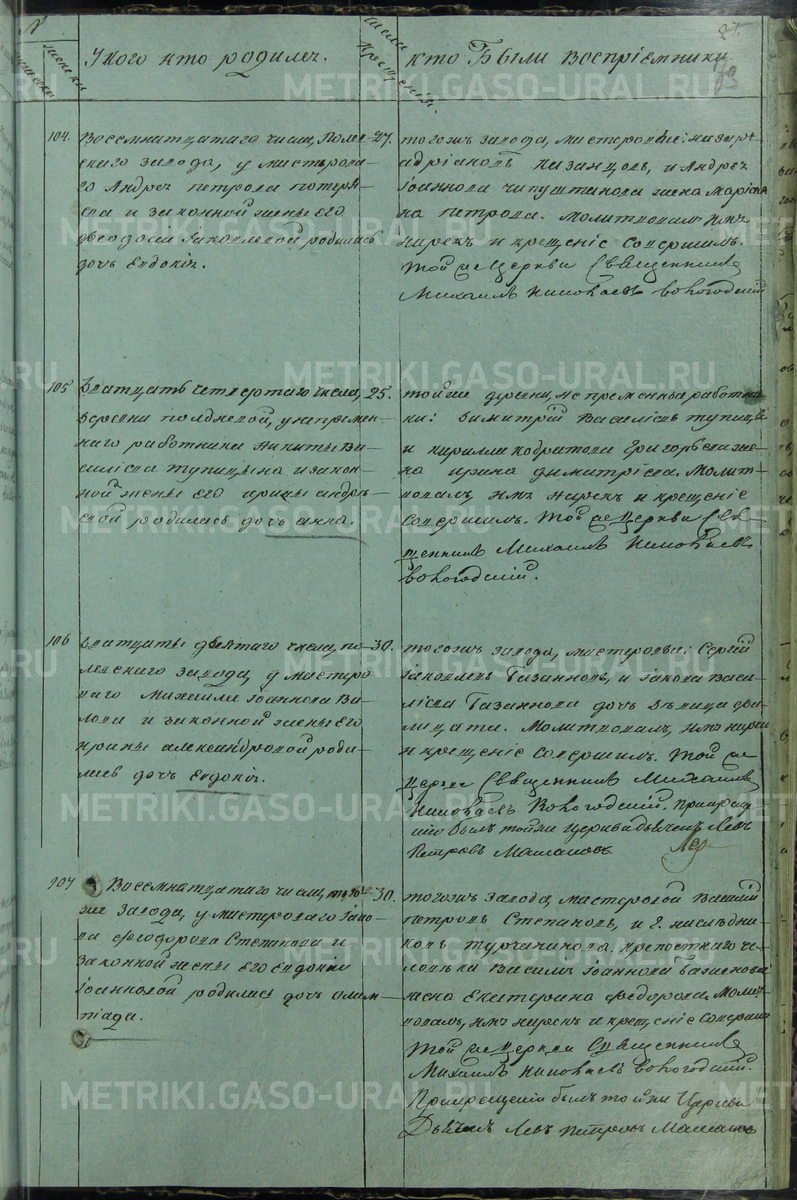 №
числа
У кого кто родился.
числа крещенія.
кто были воспріемники
73
104.
Восемнатцатаго числа, Полев-
скаго завода, у мастерова-
го Андрея петрова потеря-
ева и законной жены его
феодосіи Іаковлевой родилась
дочь Евдокія.
27.
тогожъ завода, мастеровые: назаръ
адріановъ казанцовъ, и Андрея
Іоаннова чипуштанова жена Марія
на петрова. Молитвовалъ имя
нарекъ и крещеніе совершилъ.
той же церкви Священникъ
Михаилъ Николаевъ вологодскій
105
Дватцать четвертаго числа,
деревни полдневой, у непремен-
наго работника никиты ва-
силіева тупицына и закон-
ной жены его ирины андрѣ-
евой родилась дочь анна.
25.
той же деревни, непременные работни-
ки: димитрій василіевъ тупицы
и кирилла кодратова григорьева же-
на ирина димитріева. Молит-
вовалъ, имя нарекъ и крещеніе
совершилъ. той же церкви Свя-
щенникъ Михаилъ Николаевъ
вологодскій.
106
дватцать девятаго числа, по-
левскаго завода, у мастеро-
ваго Михаила Іоаннова Ва-
лова и законной жены его
ирины александровой роди-
лась дочь Евдокія.
30.
тогожъ завода, мастеровые: Сергій
Іаковлевъ Газанновъ, и Іакова Васи-
лієва Газаннова дочь дѣвица фи-
лицата. Молитвовалъ, имя нарекъ
и крещеніе совершилъ. той же
церкви Священникъ Михаилъ
Николаевъ Вологодскій, при креще-
ніи былъ той же церкви дьячекъ Левъ
Петровъ Мамановъ.
107
Восемнатцатаго числа, того
же завода, у мастероваго Іако-
ва феодорова Степанова и
законной жены его Евдокіи
Іоанновой родилась дочь олим-
піада.
30.
тогожъ завода мастеровой Василій
петровъ Степановъ, и г. наслѣдни-
ковъ турчанинова, крепостнаго че-
ловѣка Василія Іоаннова Баженова
жена Екатерина федорова. Молит-
вовалъ, имя нарекъ и крещеніе совершилъ
той же церкви Священникъ
Михаилъ Николаевъ вологодскій.
При крещеніи былъ той же Церкви
Дьячекъ Левъ петровъ Мамановъ
METRIKI.GASO-URAL.RU